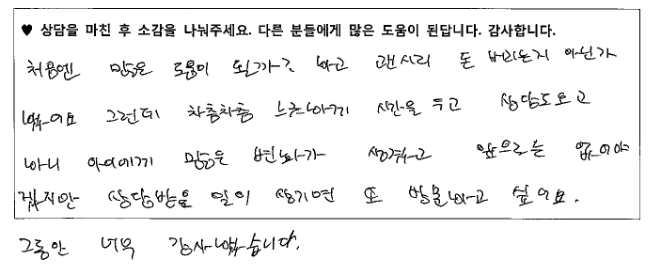 ♥ 상담을 마친 후 소감을 나눠주세요. 다른 분들에게 많은 도움이 된답니다. 감사합니다.
처음엔 많은 도움이 될까? 하고 괜시리 돈 버리는지 아닌가
했어요 그런데 차츰차츰 느긋하게 시간을 두고 상담도오고
하니 아이에게 많은 변화가 생겼고 앞으로는 없어야
겠지만 상담받을 일이 생기면 또 방문하고 싶어요.
그동안 너무 감사했습니다.